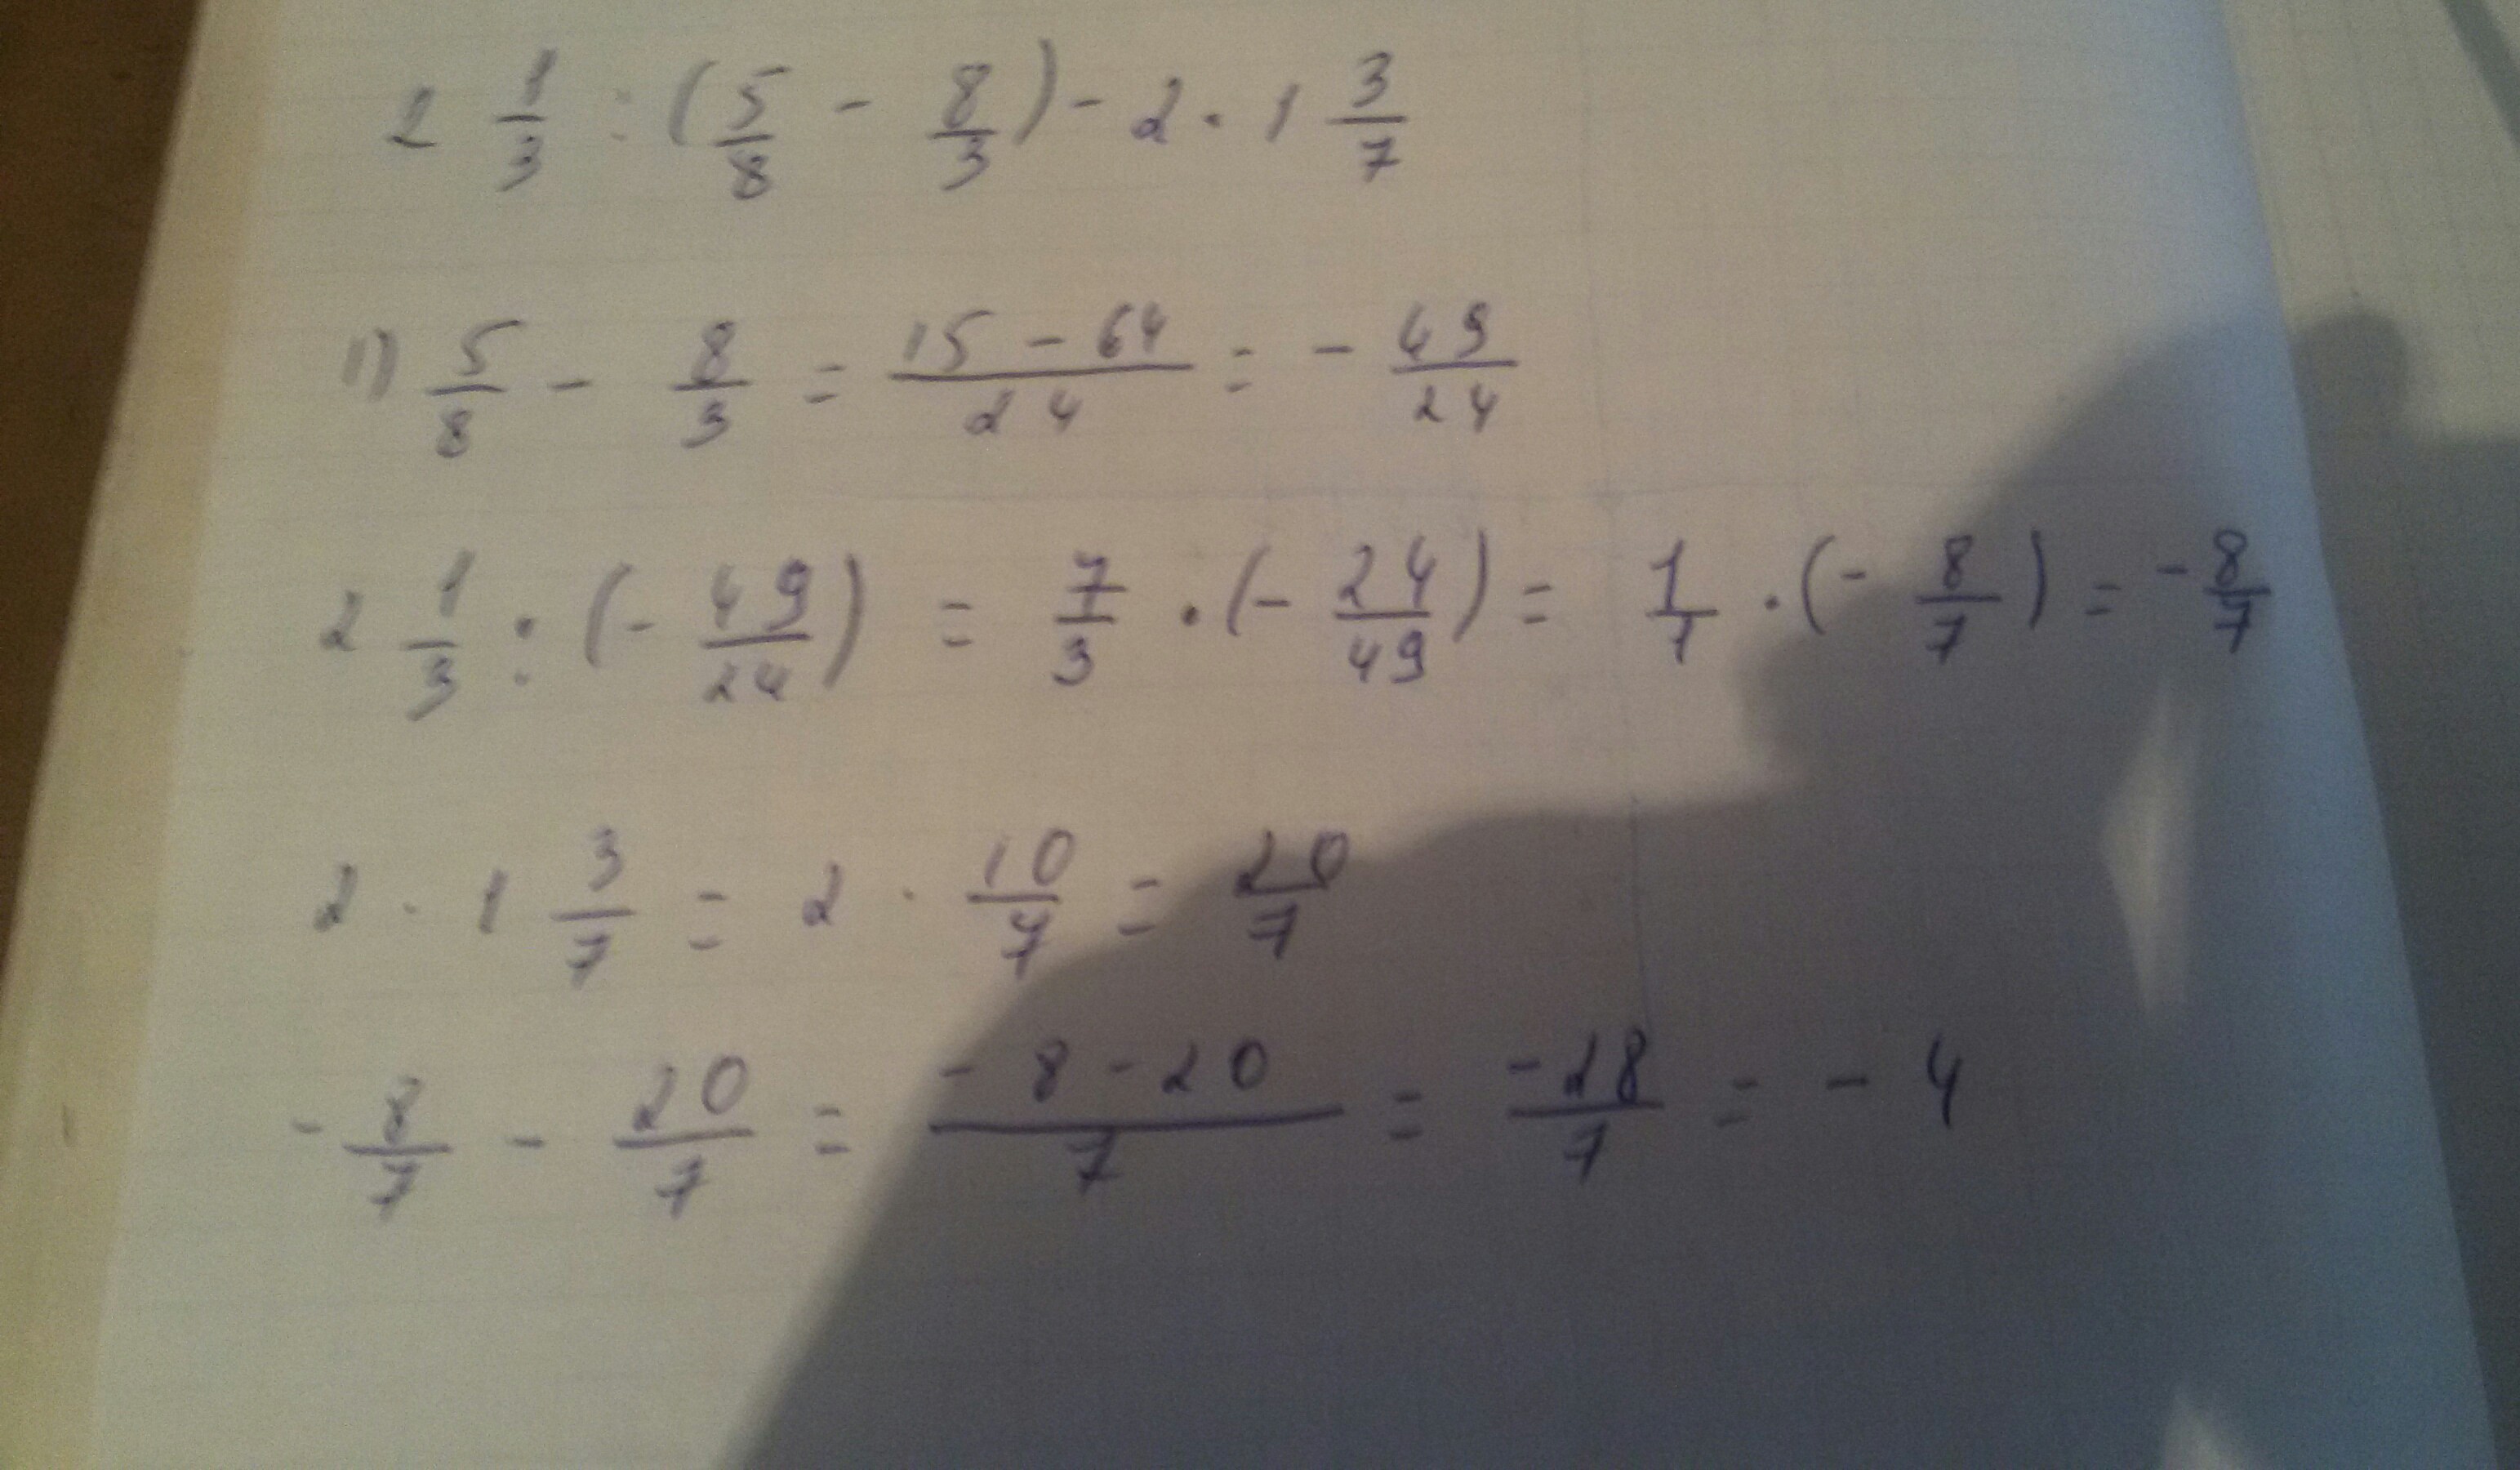 2 1/3 : (5/8 - 8/3) - 2 · 1 3/7
1) 5/8 - 8/3 = (15 - 64)/24 = - 49/24
2 1/3 : (- 49/24) = 7/3 · (- 24/49) = 1/1 · (- 8/7) = - 8/7
2 · 1 3/7 = 2 · 10/7 = 20/7
- 8/7 - 20/7 = (- 8 - 20)/7 = -28/7 = - 4